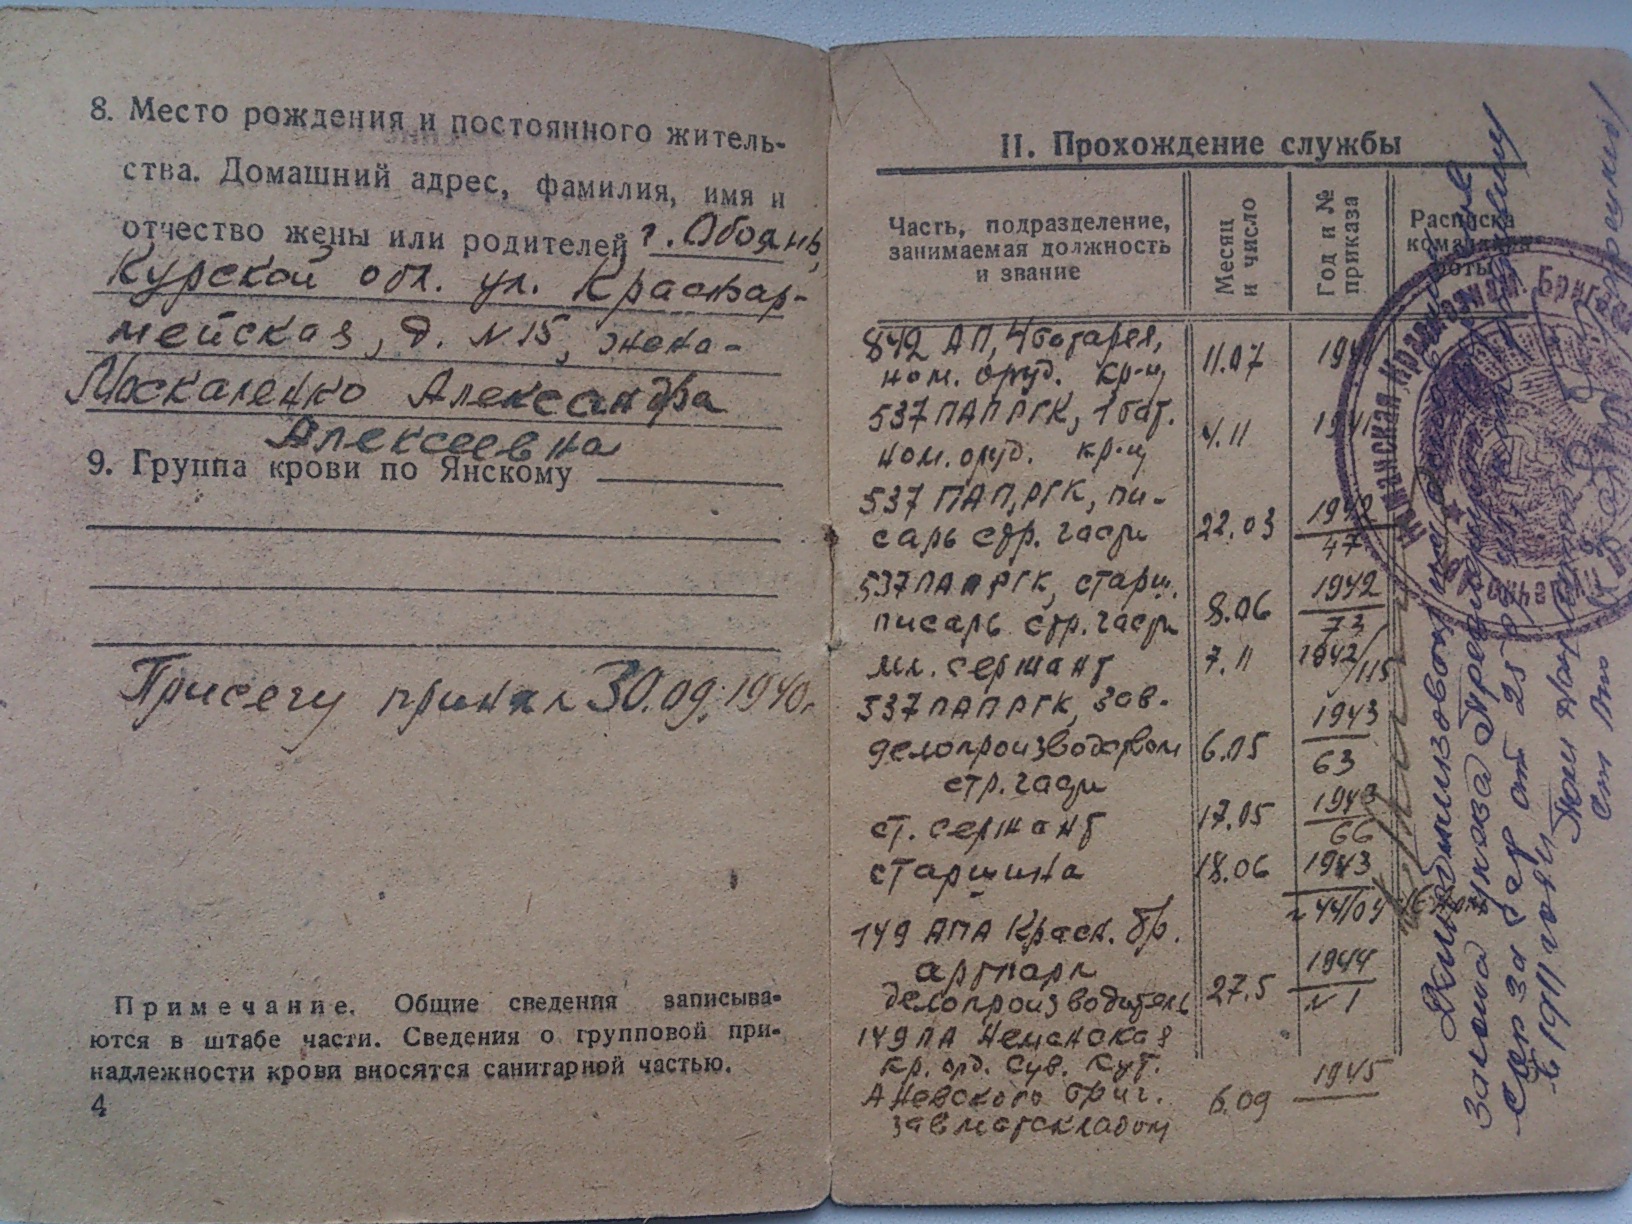 8. Место рождения и постоянного житель-
ства. Домашний адрес, фамилия, имя и
отчество жены или родителей г. Обоянь,
Курской обл. ул. Красноар-
мейская, д. N 15, жена -
Москаленко Александра
Алексеевна
9. Группа крови по Янскому
Присягу принял 30.09.1940г.
Примечание. Общие сведения записыва-
ются в штабе части. Сведения о групповой при-
надлежности крови вносятся санитарной частью.
4
II. Прохождение службы
Часть, подразделение,
занимаемая должность
и звание
Месяц
и число
Год и №
приказа
Расписка
командира
роты
842 АП, 4 батарея,
ном. оруд. кр-ц 11.07
537 ПАП РГК, 1 бат.
ном. оруд. кр-ц 4.11 1941
537 ПАП РГК, пи-
сарь стр. части 22.03 1942
47
537 ПАП РГК, старш.
писарь стр. части 8.06 1942
73
мл. сержант 7.11 1942/115
537 ПАП РГК, зав.
делопроизводством 6.05 1943
63
стр. части
ст. сержант 17.05 1943
66
старшина 18.06 1943
N 44/04
149 АПА Красн. бр.
артпарк
делопроизводитель 27.5 1944
N 1
149 ПА Неманская
кр. орд. Сув. Кут.
А Невского бриг. 6.09 1945
зав матскладом
Неманская Краснознам. Бригада
Демобилизован на основании
закона указа Президиума
СССР за
от 25